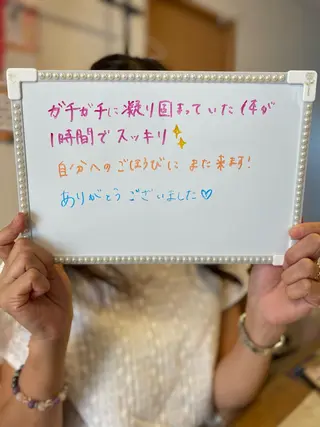 ガチガチに凝り固まっていた体が
1時間でスッキリ✨
自分へのごほうびにまた来ます!
ありがとうございました♡